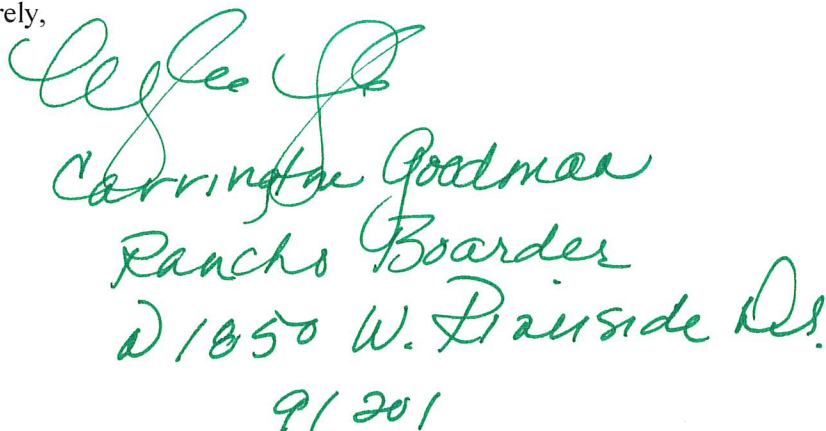 rely,
Carrington Goodman
Rancho Boarder
@ 1850 W. Riverside Dr.
91201